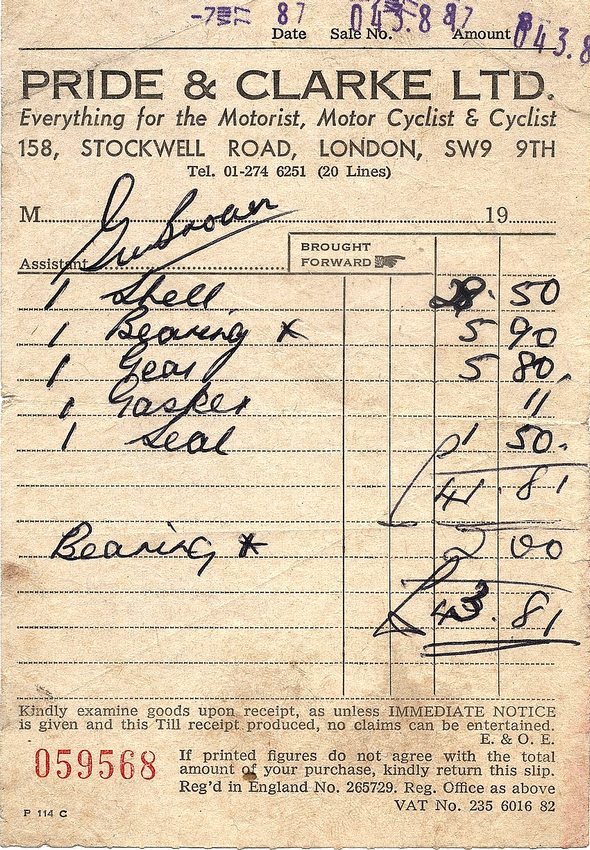 -7 VII 77 87 043.8 87 043.8
Date Sale No. Amount
PRIDE & CLARKE LTD.
Everything for the Motorist, Motor Cyclist & Cyclist
158, STOCKWELL ROAD, LONDON, SW9 9TH
Tel. 01-274 6251 (20 Lines)
M. Brown 19
Assistant BROUGHT FORWARD
1 Shell 28. 50
1 Bearing x 5 90
1 Gear 5 80
1 Gasket 11
1 Seal 1 50.
£ 41. 81
Bearing * 2 00
£ 43. 81
Kindly examine goods upon receipt, as unless IMMEDIATE NOTICE
is given and this Till receipt produced, no claims can be entertained.
E. & O. E.
059568
If printed figures do not agree with the total
amount of your purchase, kindly return this slip.
Reg'd in England No. 265729. Reg. Office as above
P 114 C
VAT No. 235 6016 82